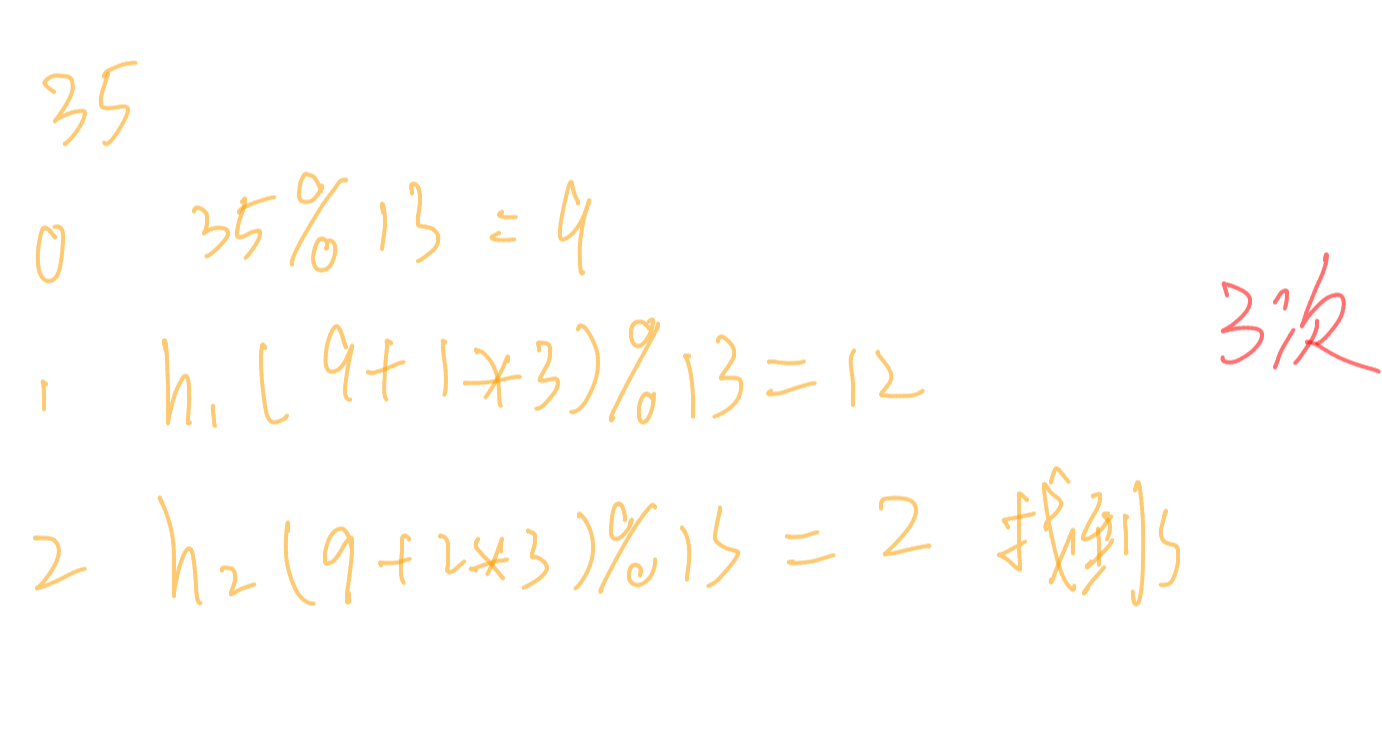 35
0 35%13=9
3次
1 h₁(9+1*3)%13=12
2 h₂(9+2*3)%13=2 找到s